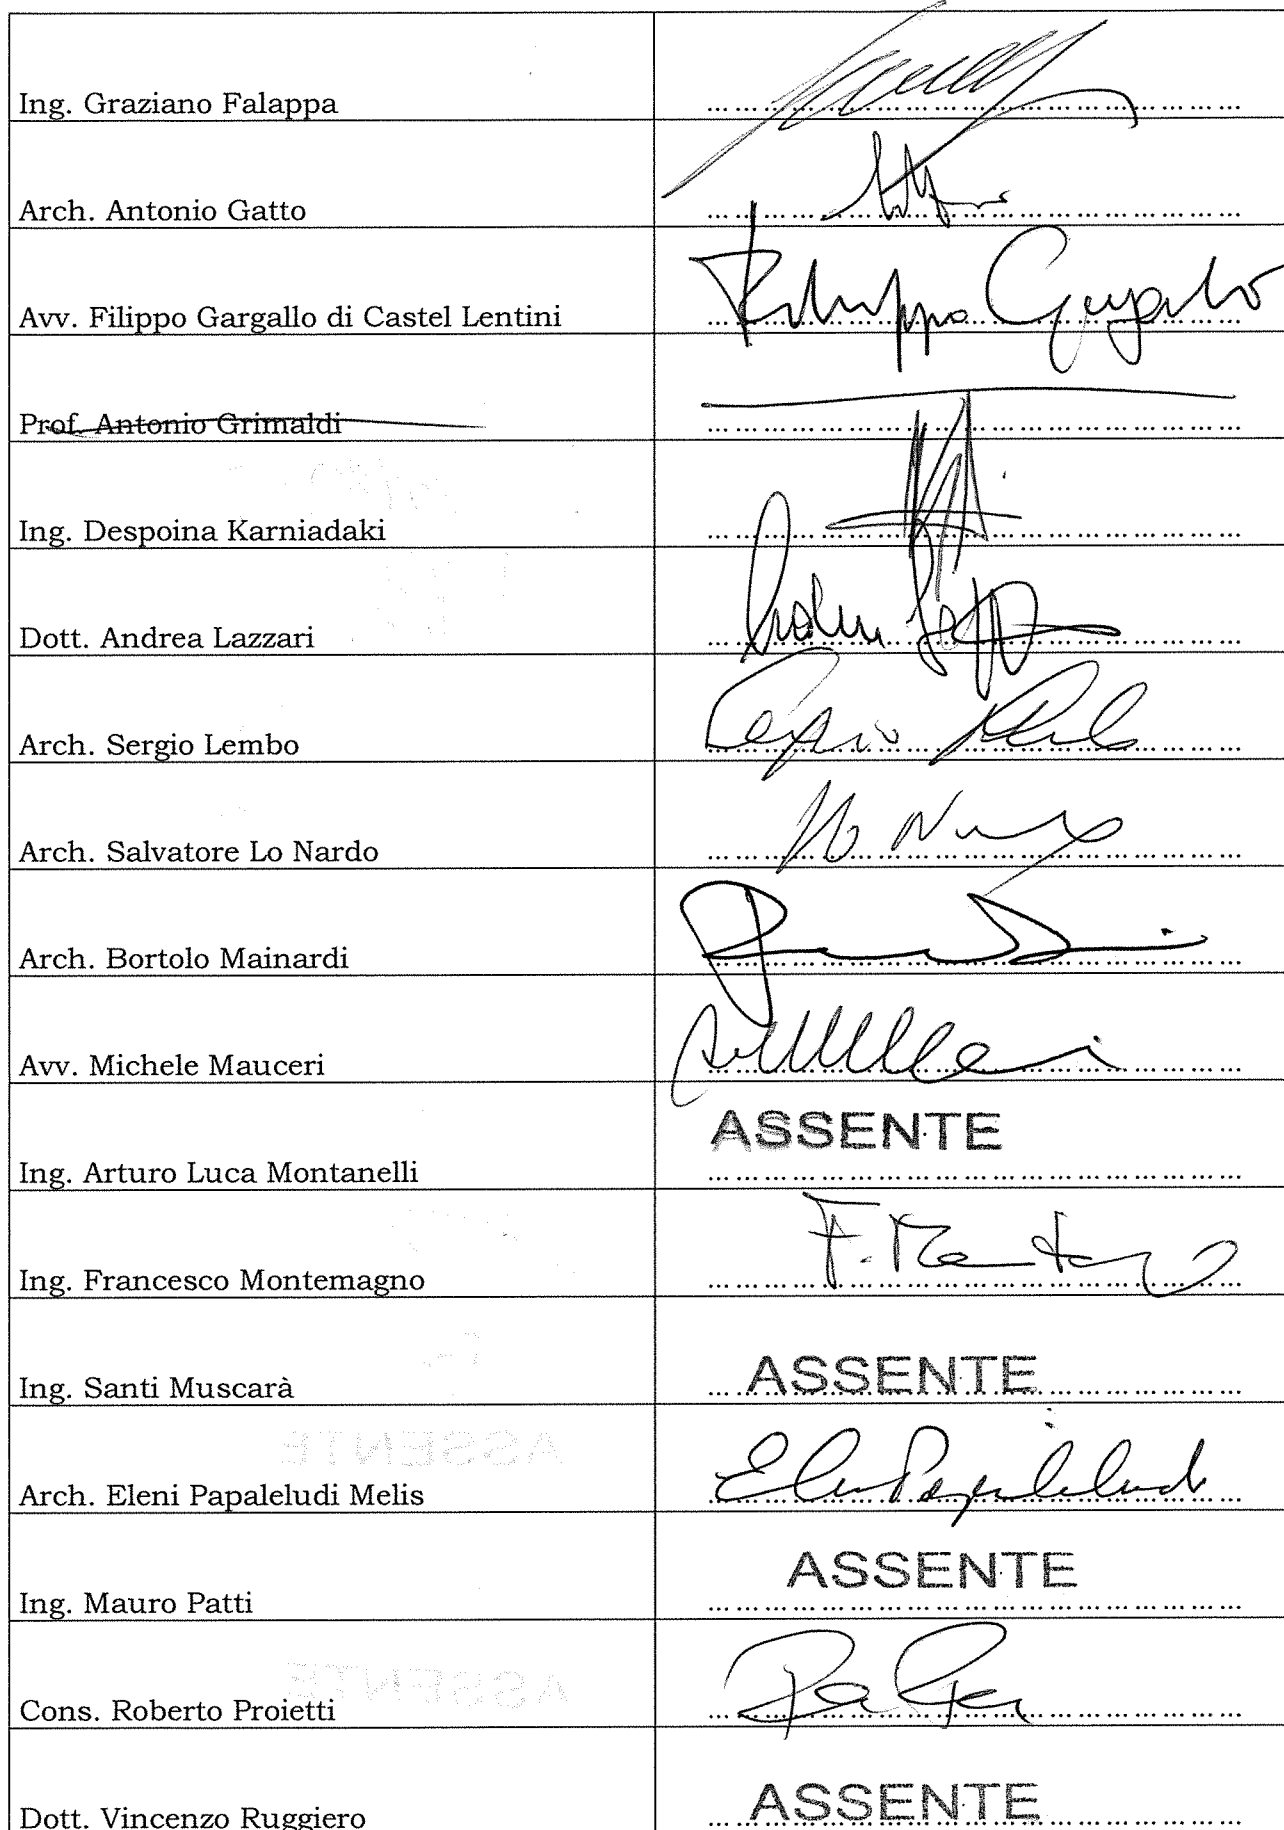 Ing. Graziano Falappa
Arch. Antonio Gatto
Avv. Filippo Gargallo di Castel Lentini
Filippo Gargallo
Prof. Antonio Grimaldi
Ing. Despoina Karniadaki
Dott. Andrea Lazzari
Arch. Sergio Lembo
Sergio
Arch. Salvatore Lo Nardo
Lo Nardo
Arch. Bortolo Mainardi
Avv. Michele Mauceri
ASSENTE
Ing. Arturo Luca Montanelli
Ing. Francesco Montemagno
F.
Ing. Santi Muscarà
ASSENTE
Arch. Eleni Papaleludi Melis
Eleni Papaleludi
ASSENTE
Ing. Mauro Patti
Cons. Roberto Proietti
Dott. Vincenzo Ruggiero
ASSENTE